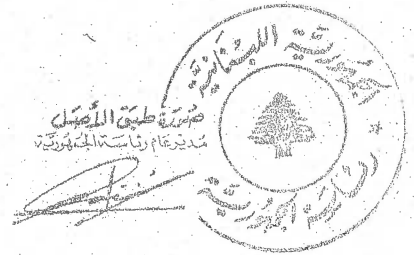 الجمهورية اللبنانية
رئاسة الجمهورية
صورة طبق الأصل
مدير عام رئاسة الجمهورية